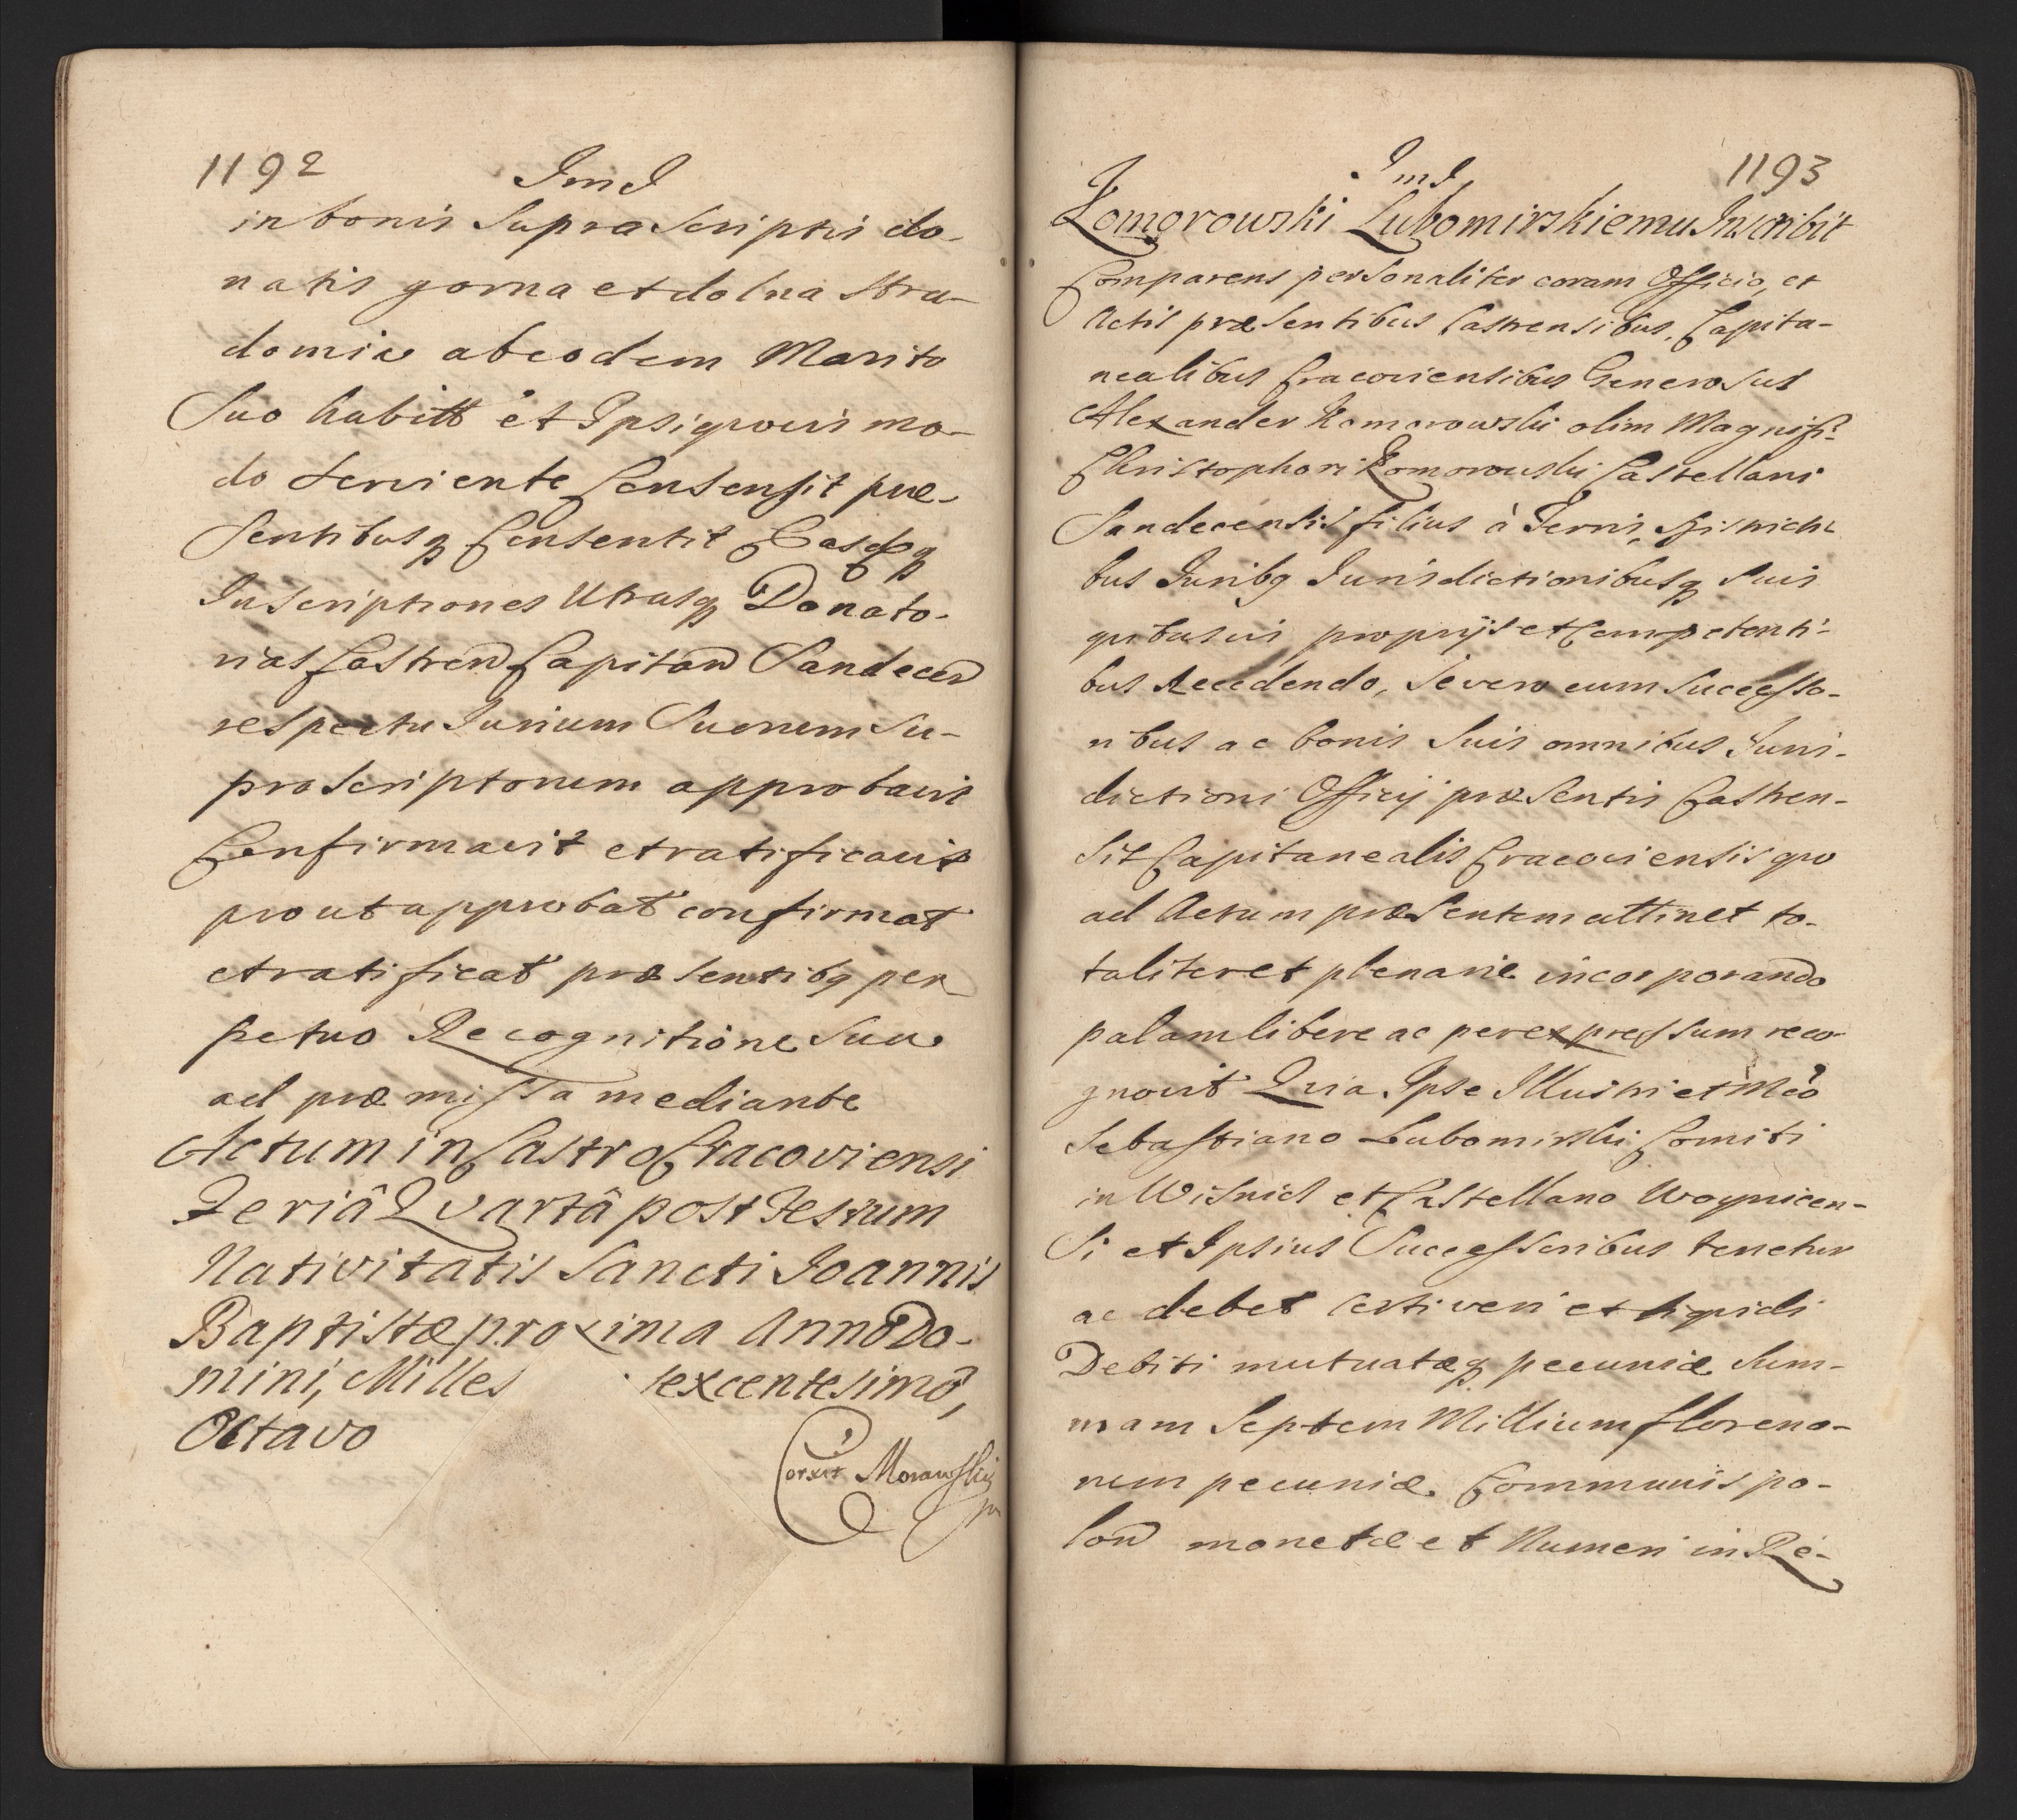 1192 ImJ
in bonis supra scriptis do-
natis gorna et dolna stra-
domia ab eodem Marito
suo habitt et Ipsi quovis mo-
do serviente Consensit præ-
sentibusq Consentit Easdq
Inscriptiones Utrasq Donato-
rias Castren Capitan Sandecen
respectu Jurium Suorum su-
prascriptorum approbavit
Confirmavit et ratificavit
prout approbat confirmat
et ratificat præsentibq per
petuo Recognitione sua
ad præmissa mediante
Actum in Castro Cracoviensi
Feriâ Quartâ post Festum
Nativitatis Sancti Joannis
Baptistæ proxima Anno Do-
mini, Milles sexcentesimo,
Octavo
Corxit Morawski
1193
ImJ
Komorowski Lubomirskiemu Inscribit
Comparens personaliter coram Officio, et
Actis præsentibus Castrensibus, Capita-
nealibus Cracoviensibus Generosus
Alexander Komorowski olim Magnifi:
Christophori Komorowski Castellani
Sandecensis filius à Terris, Districti-
bus Juribq Jurisdictionibusq suis
quibusvis proprijs et Competenti-
bus Recedendo, Se vero cum successo-
ribus ac bonis suis omnibus Juris-
dictioni Officij præsentis Castren-
sis Capitanealis Cracoviensis quo
ad Actum præsentem attinet to-
taliter et plenarie incorporando
palam libere ac per expressum reco-
gnovit Quia Ipse Illustri et Mco
Sebastiano Lubomirski Comiti
in Wisnicz et Castellano Woynicen-
si et Ipsius Successoribus tenetur
ac debet certi veri et liquidi
Debiti mutuatæq pecuniæ sum-
mam Septem Millium floreno-
rum pecuniæ Communis po-
lon monetæ et Numeri in Re-